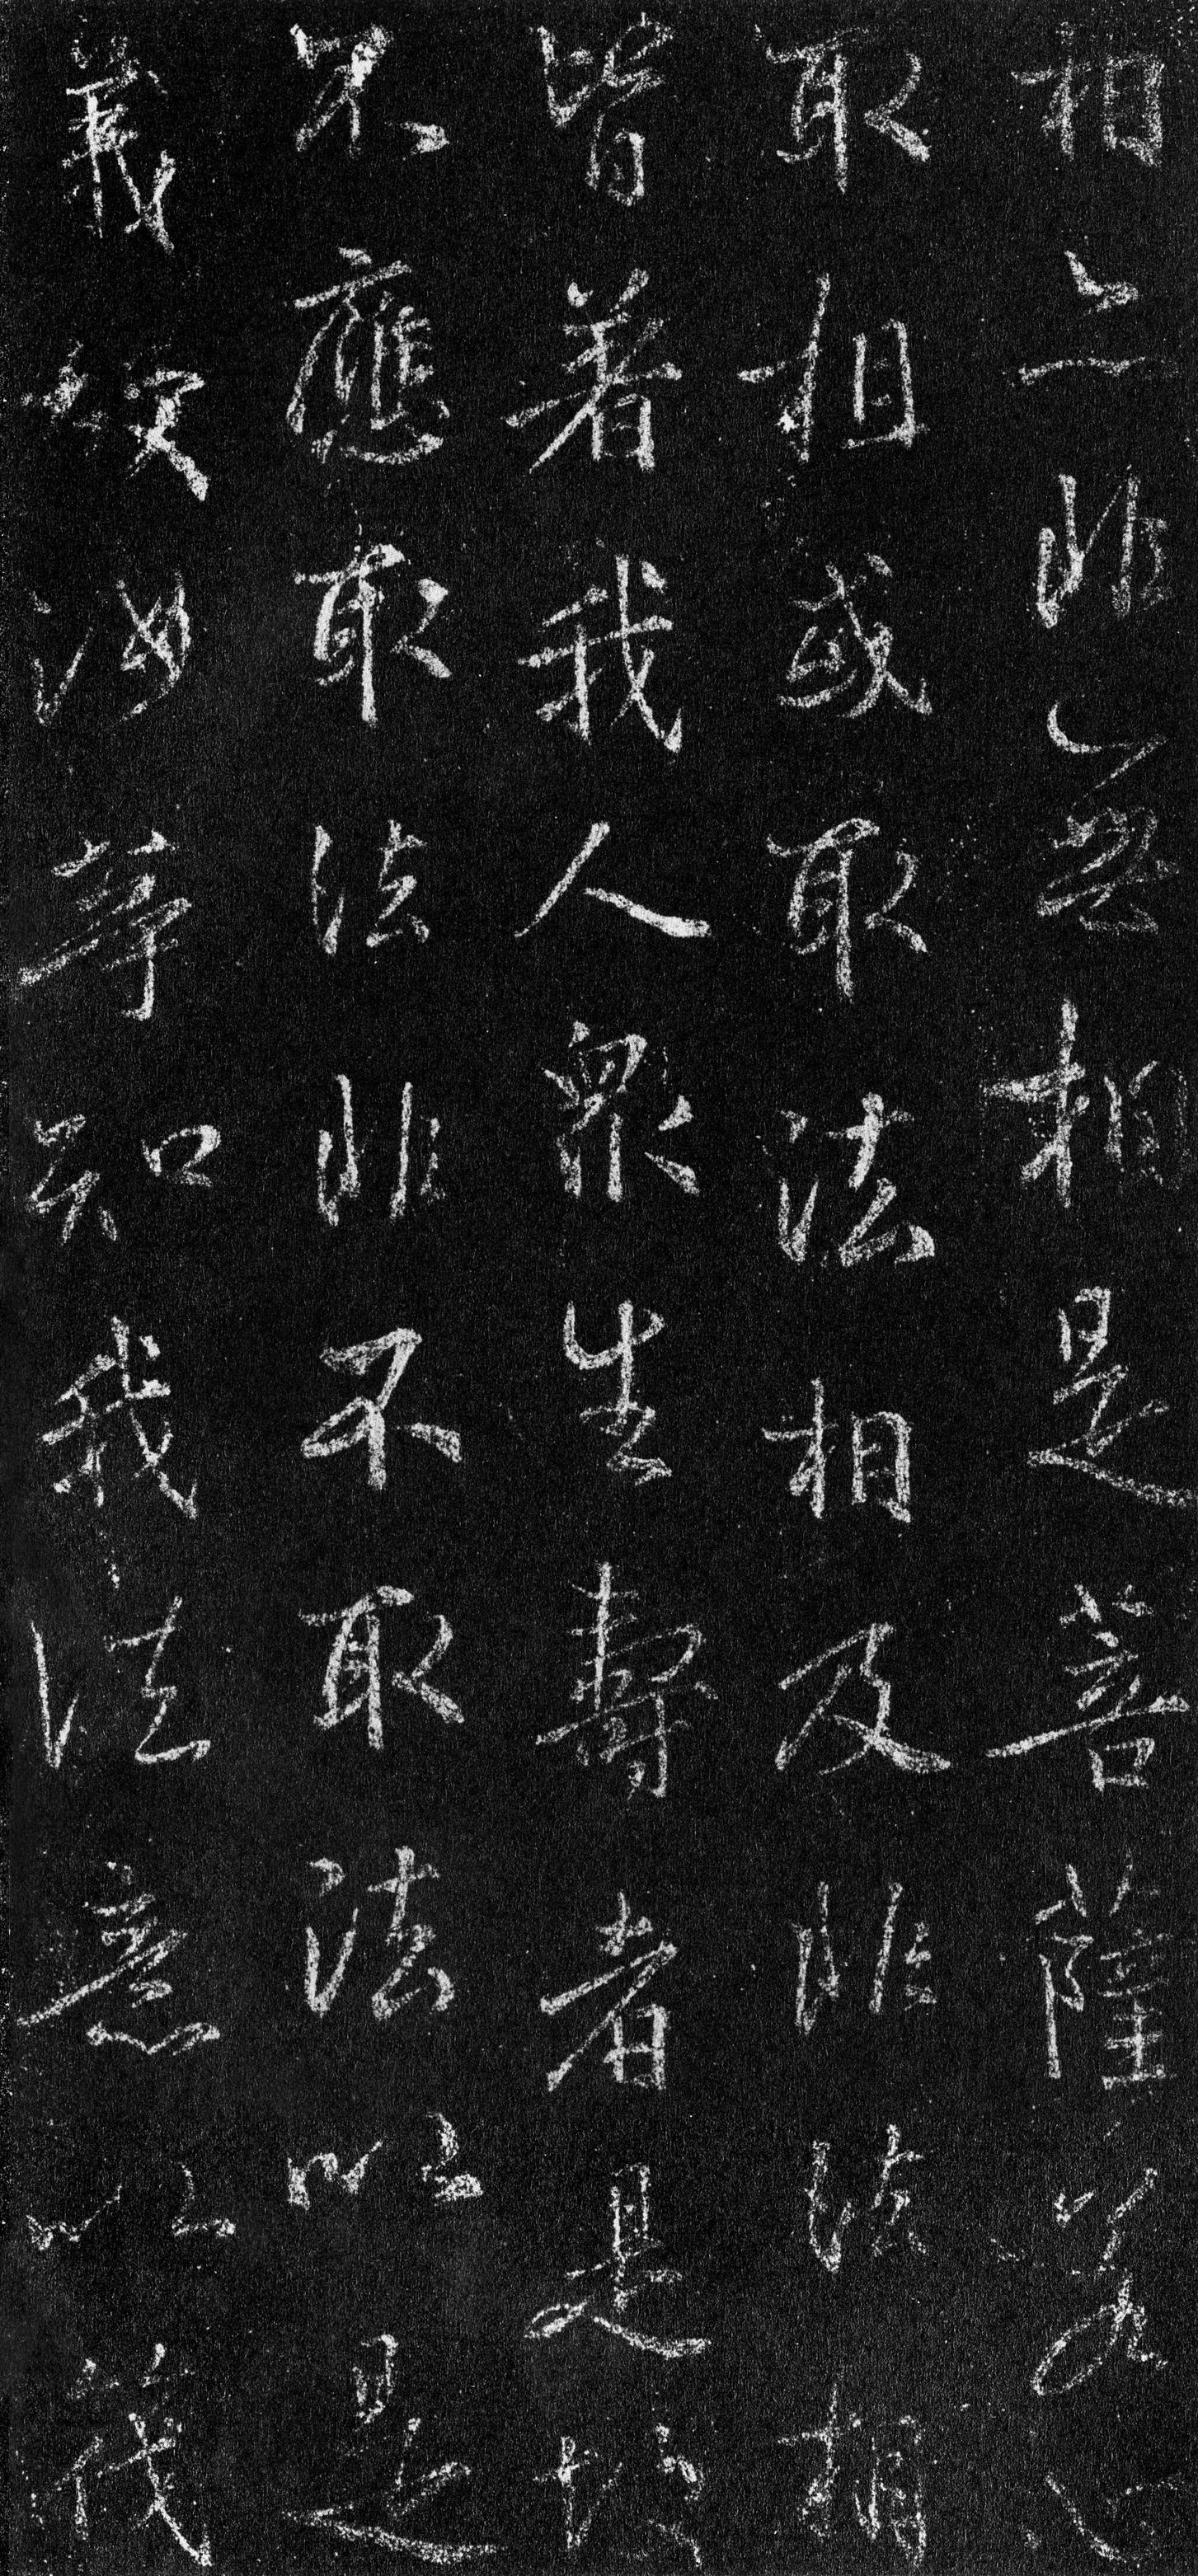 相亦非無相是菩薩若心
取相或取法相及非法相
皆着我人衆生壽者是故
不應取法非不取法以是
義故汝等知我法意以筏